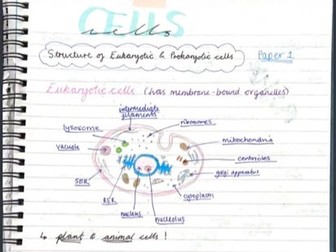 CELLS
cells
Structure of Eukaryotic & Prokaryotic cells
Paper 1
Eukaryotic cells (has membrane-bound organelles)
intermediate
filaments
ribosomes
lysosome
mitochondria
vacuole
centrioles
golgi apparatus
SER
cytoplasm
RER
nucleus
nucleolus
↳ plant & animal cells!